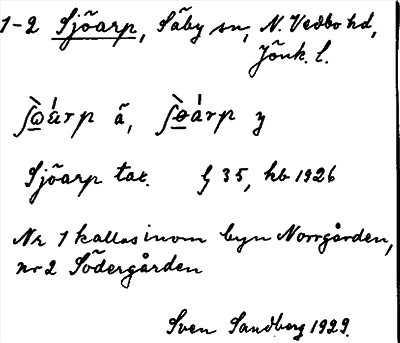 1-2 Sjöarp, Säby sn, N. Vedbo hd,
Jönk. l.
ʃɷ̀ár̀p ä, ʃɵ̀árp y
Sjöarp tax. § 35, hb 1926
Nr 1 kallas inom byn Norrgården,
nr 2 Södergården
Sven Sandberg 1929.